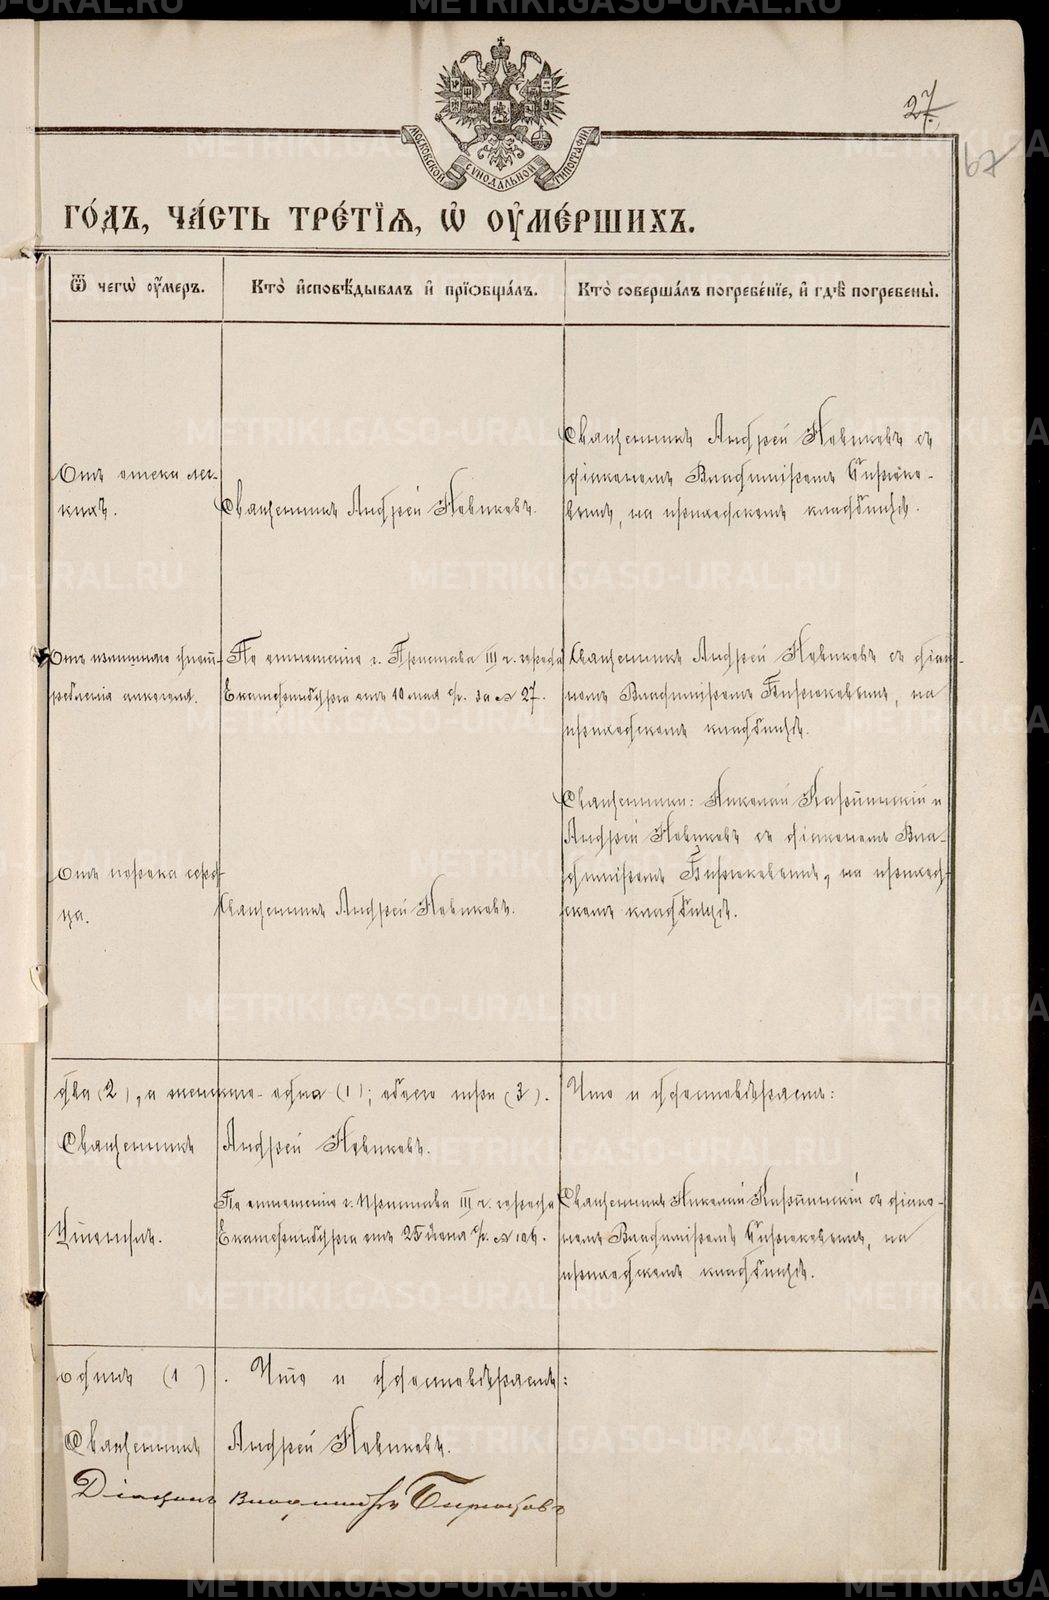 27
67
МОСКОВСКОЙ СѴНОДАЛЬНОЙ ТИПОГРАФІИ
ГО́ДЪ, ЧА́СТЬ ТРЕ́ТЇѦ, Ѡ҆ ОУ҆МЕ́РШИХЪ.
Ѿ чегѡ̀ оу҆́меръ.
Кто̀ и҆сповѣ́дывалъ и҆ прїѡбща́лъ.
Кто̀ соверша́лъ погребе́нїе, и҆ гдѣ̀ погребены̀.
Отъ отека лег-
кихъ.
Священникъ Андрей Новиковъ.
Священникъ Андрей Новиковъ съ
діакономъ Владиміромъ Бирюко-
вымъ, на приходскомъ кладбищѣ.
Отъ излишняго употр-
ребленія алкоголя.
По отношенію г. Пристава III ч. города
Екатеринбурга отъ 10 мая с/г. за № 27.
Священникъ Андрей Новиковъ съ діако-
номъ Владиміромъ Бирюковымъ, на
приходскомъ кладбищѣ.
Отъ порока серд-
ца.
Священникъ Андрей Новиковъ.
Священники: Николай Карпинскій и
Андрей Новиковъ съ діакономъ Вла-
диміромъ Бирюковымъ, на приход-
скомъ кладбищѣ.
два (2), а женскаго - одна (1); обоего три (3).
Что и удостовѣряемъ:
Священникъ Андрей Новиковъ.
Убитъ.
По отношенію г. Пристава III ч. города
Екатеринбурга отъ 25 іюня с/г. № 106.
Священникъ Николай Карпинскій съ діако-
номъ Владиміромъ Бирюковымъ, на
приходскомъ кладбищѣ.
одинъ (1). Что и удостовѣряемъ:
Священникъ Андрей Новиковъ.
Діаконъ Владиміръ Бирюковъ
METRIKI.GASO-URAL.RU